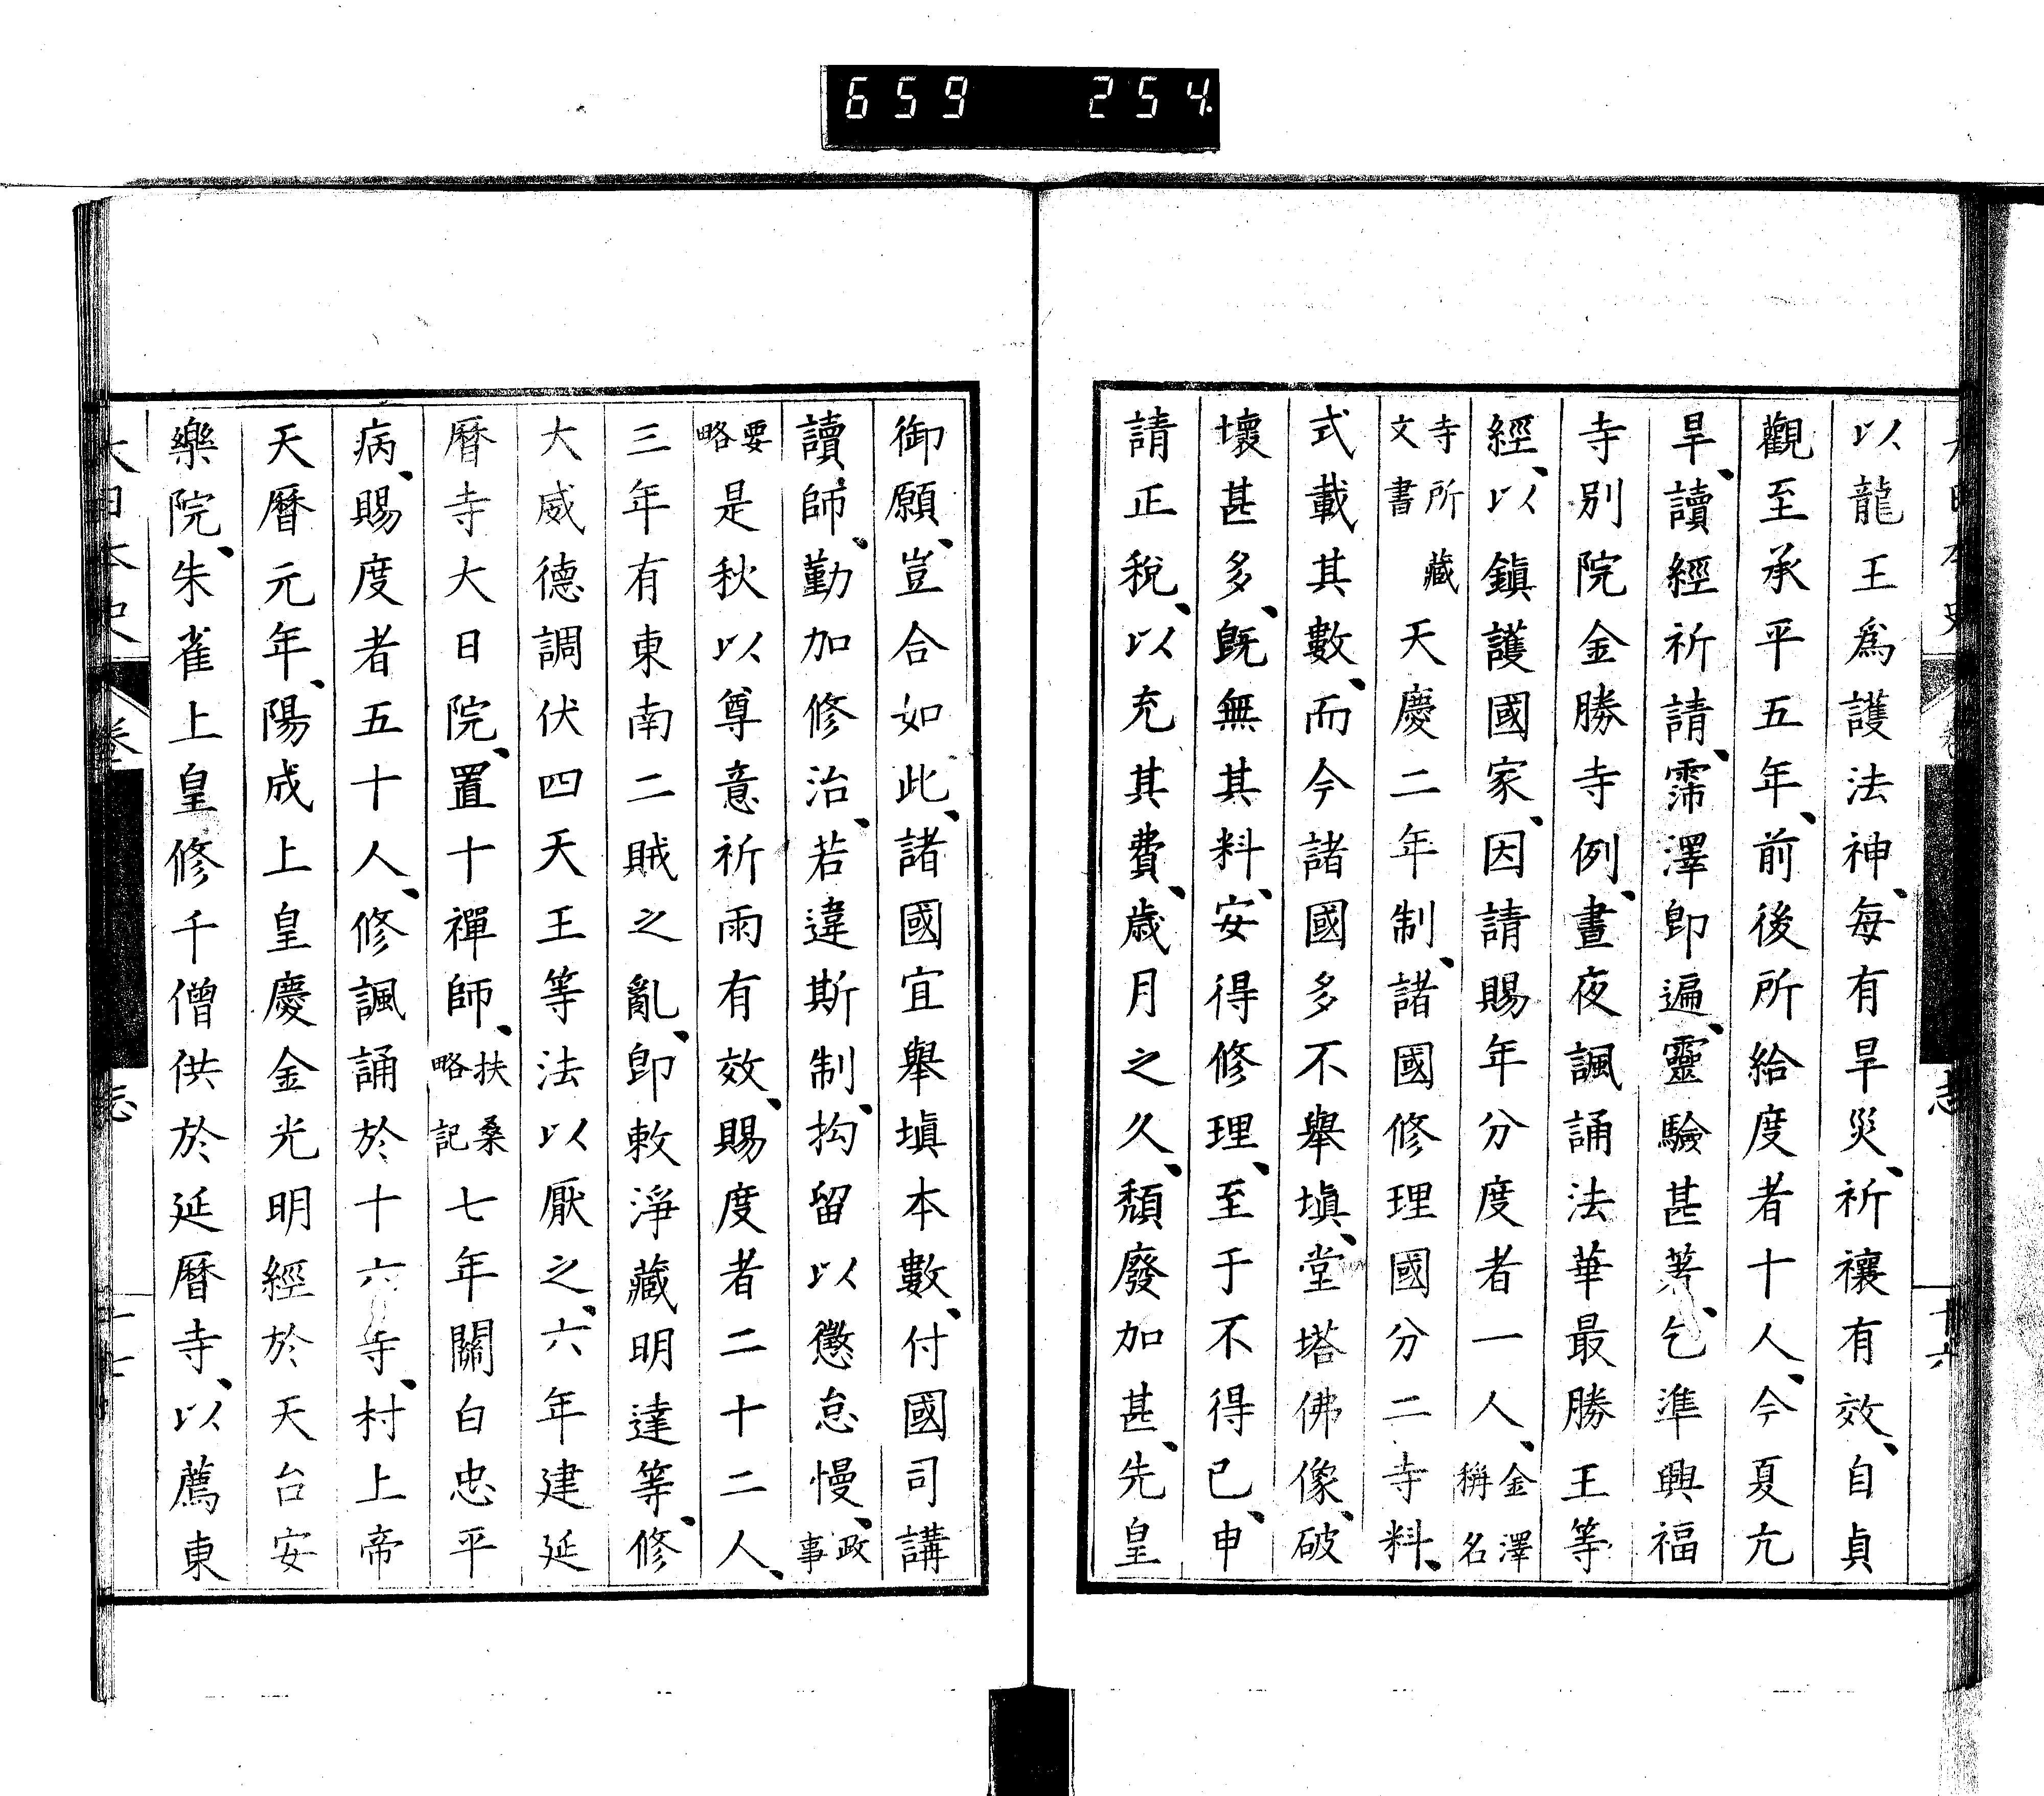 659 254
以龍王爲護法神、每有旱災、祈禳有效、自貞
觀至承平五年、前後所給度者十人、今夏亢
旱、讀經祈請、霈澤卽遍、靈驗甚著、乞準興福
寺別院金勝寺例、晝夜諷誦法華最勝王等
經、以鎭護國家、因請賜年分度者一人、金澤稱名
寺所藏文書天慶二年制、諸國修理國分二寺料、
式載其數、而今諸國多不擧塡、堂塔佛像、破
壞甚多、旣無其料、安得修理、至于不得已、申
請正稅、以充其費、歲月之久、頹廢加甚、先皇
御願、豈合如此、諸國宜擧塡本數、付國司講
讀師、勤加修治、若違斯制、拘留以懲怠慢、政事
要略是秋以尊意祈雨有效、賜度者二十二人、
三年有東南二賊之亂、卽敕淨藏明達等、修
大威德調伏四天王等法以厭之、六年建延
曆寺大日院、置十禪師、扶桑略記七年關白忠平
病、賜度者五十人、修諷誦於十六寺、村上帝
天曆元年、陽成上皇慶金光明經於天台安
樂院、朱雀上皇修千僧供於延曆寺、以薦東
大日本史
志